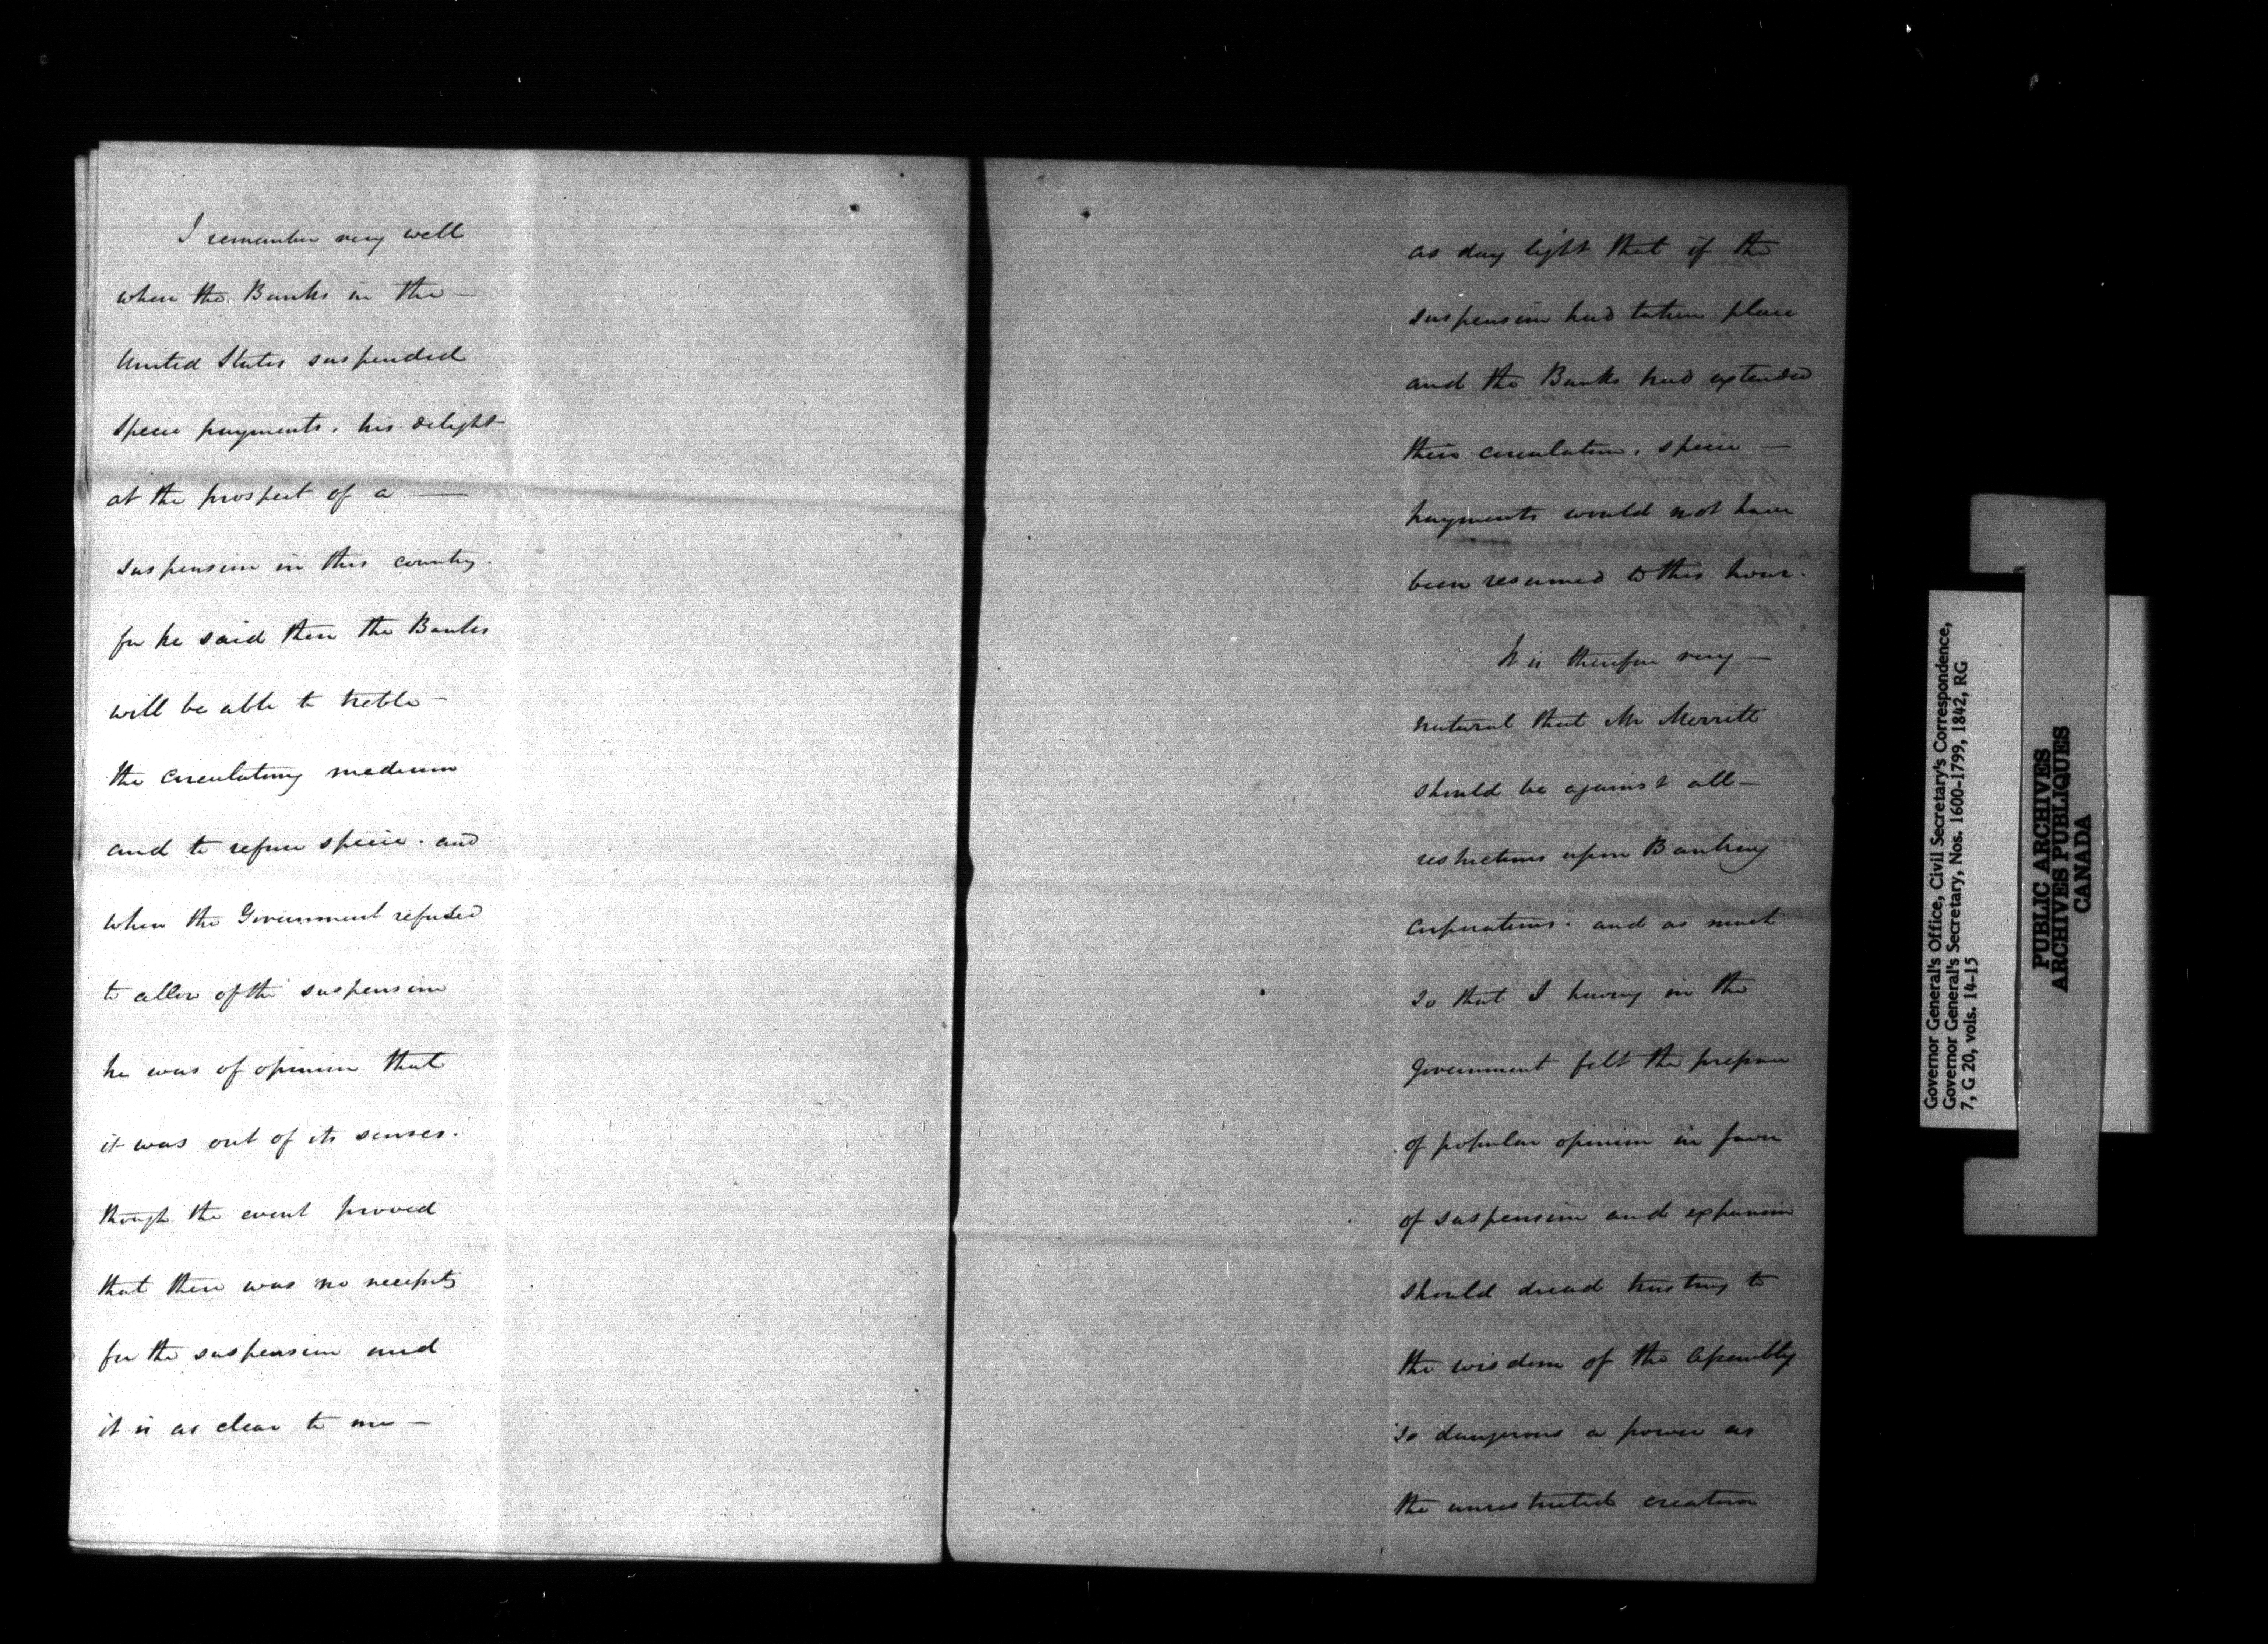 I remember very well
when the Banks in the —
United States suspended
specie payments, his delight
at the prospect of a —
suspension in this country.
for he said then the Banks
will be able to treble —
the circulating medium
and to refuse specie. and
when the Government refused
to allow of the suspension
he was of opinion that
it was out of its senses.
though the event proved
that there was no necessity
for the suspension and
it is as clear to me —
as day light that if the
suspension had taken place
and the Banks had extended
their circulation, specie —
payments would not have
been resumed to this hour.
It is therefore very —
natural that Mr Merritt
should be against all —
restrictions upon Banking
corporations. and as much
so that I having in the
Government felt the pressure
of popular opinion in favor
of suspension and expansion
should dread trusting to
the wisdom of the Assembly
so dangerous a power as
the unrestricted creation
Governor General's Office, Civil Secretary's Correspondence,
Governor General's Secretary, Nos. 1600-1799, 1842, RG
7, G 20, vols. 14-15
PUBLIC ARCHIVES
ARCHIVES PUBLIQUES
CANADA